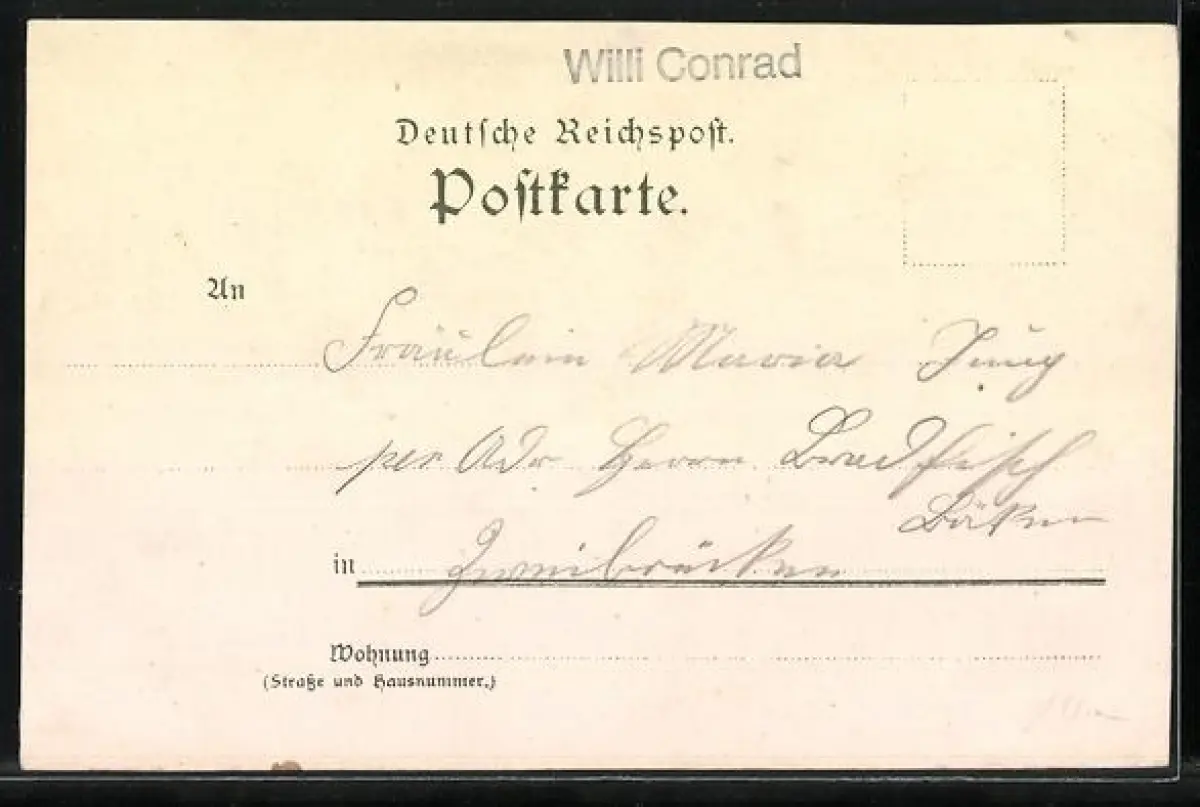 Willi Conrad
Deutsche Reichspost.
Postkarte.
An
Fräulein Maria Jung
per Adr Herrn Bradfisch
Bäker
in Zweibrücken
Wohnung
(Straße und Hausnummer.)